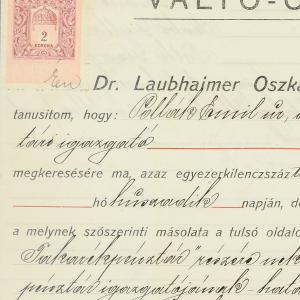 VÁLTÓ-Ó
2
KORONA
Én Dr. Laubhaimer Oszká
tanusítom, hogy: Pollák Emil úr, a
tári igazgató
megkeresésére ma, azaz egyezerkilenczszáz
hó huszadik napján, de
a melynek szószerinti másolata a tulsó oldalo
Takarékpénztár" részére nek
pénztár igazgatójának hata